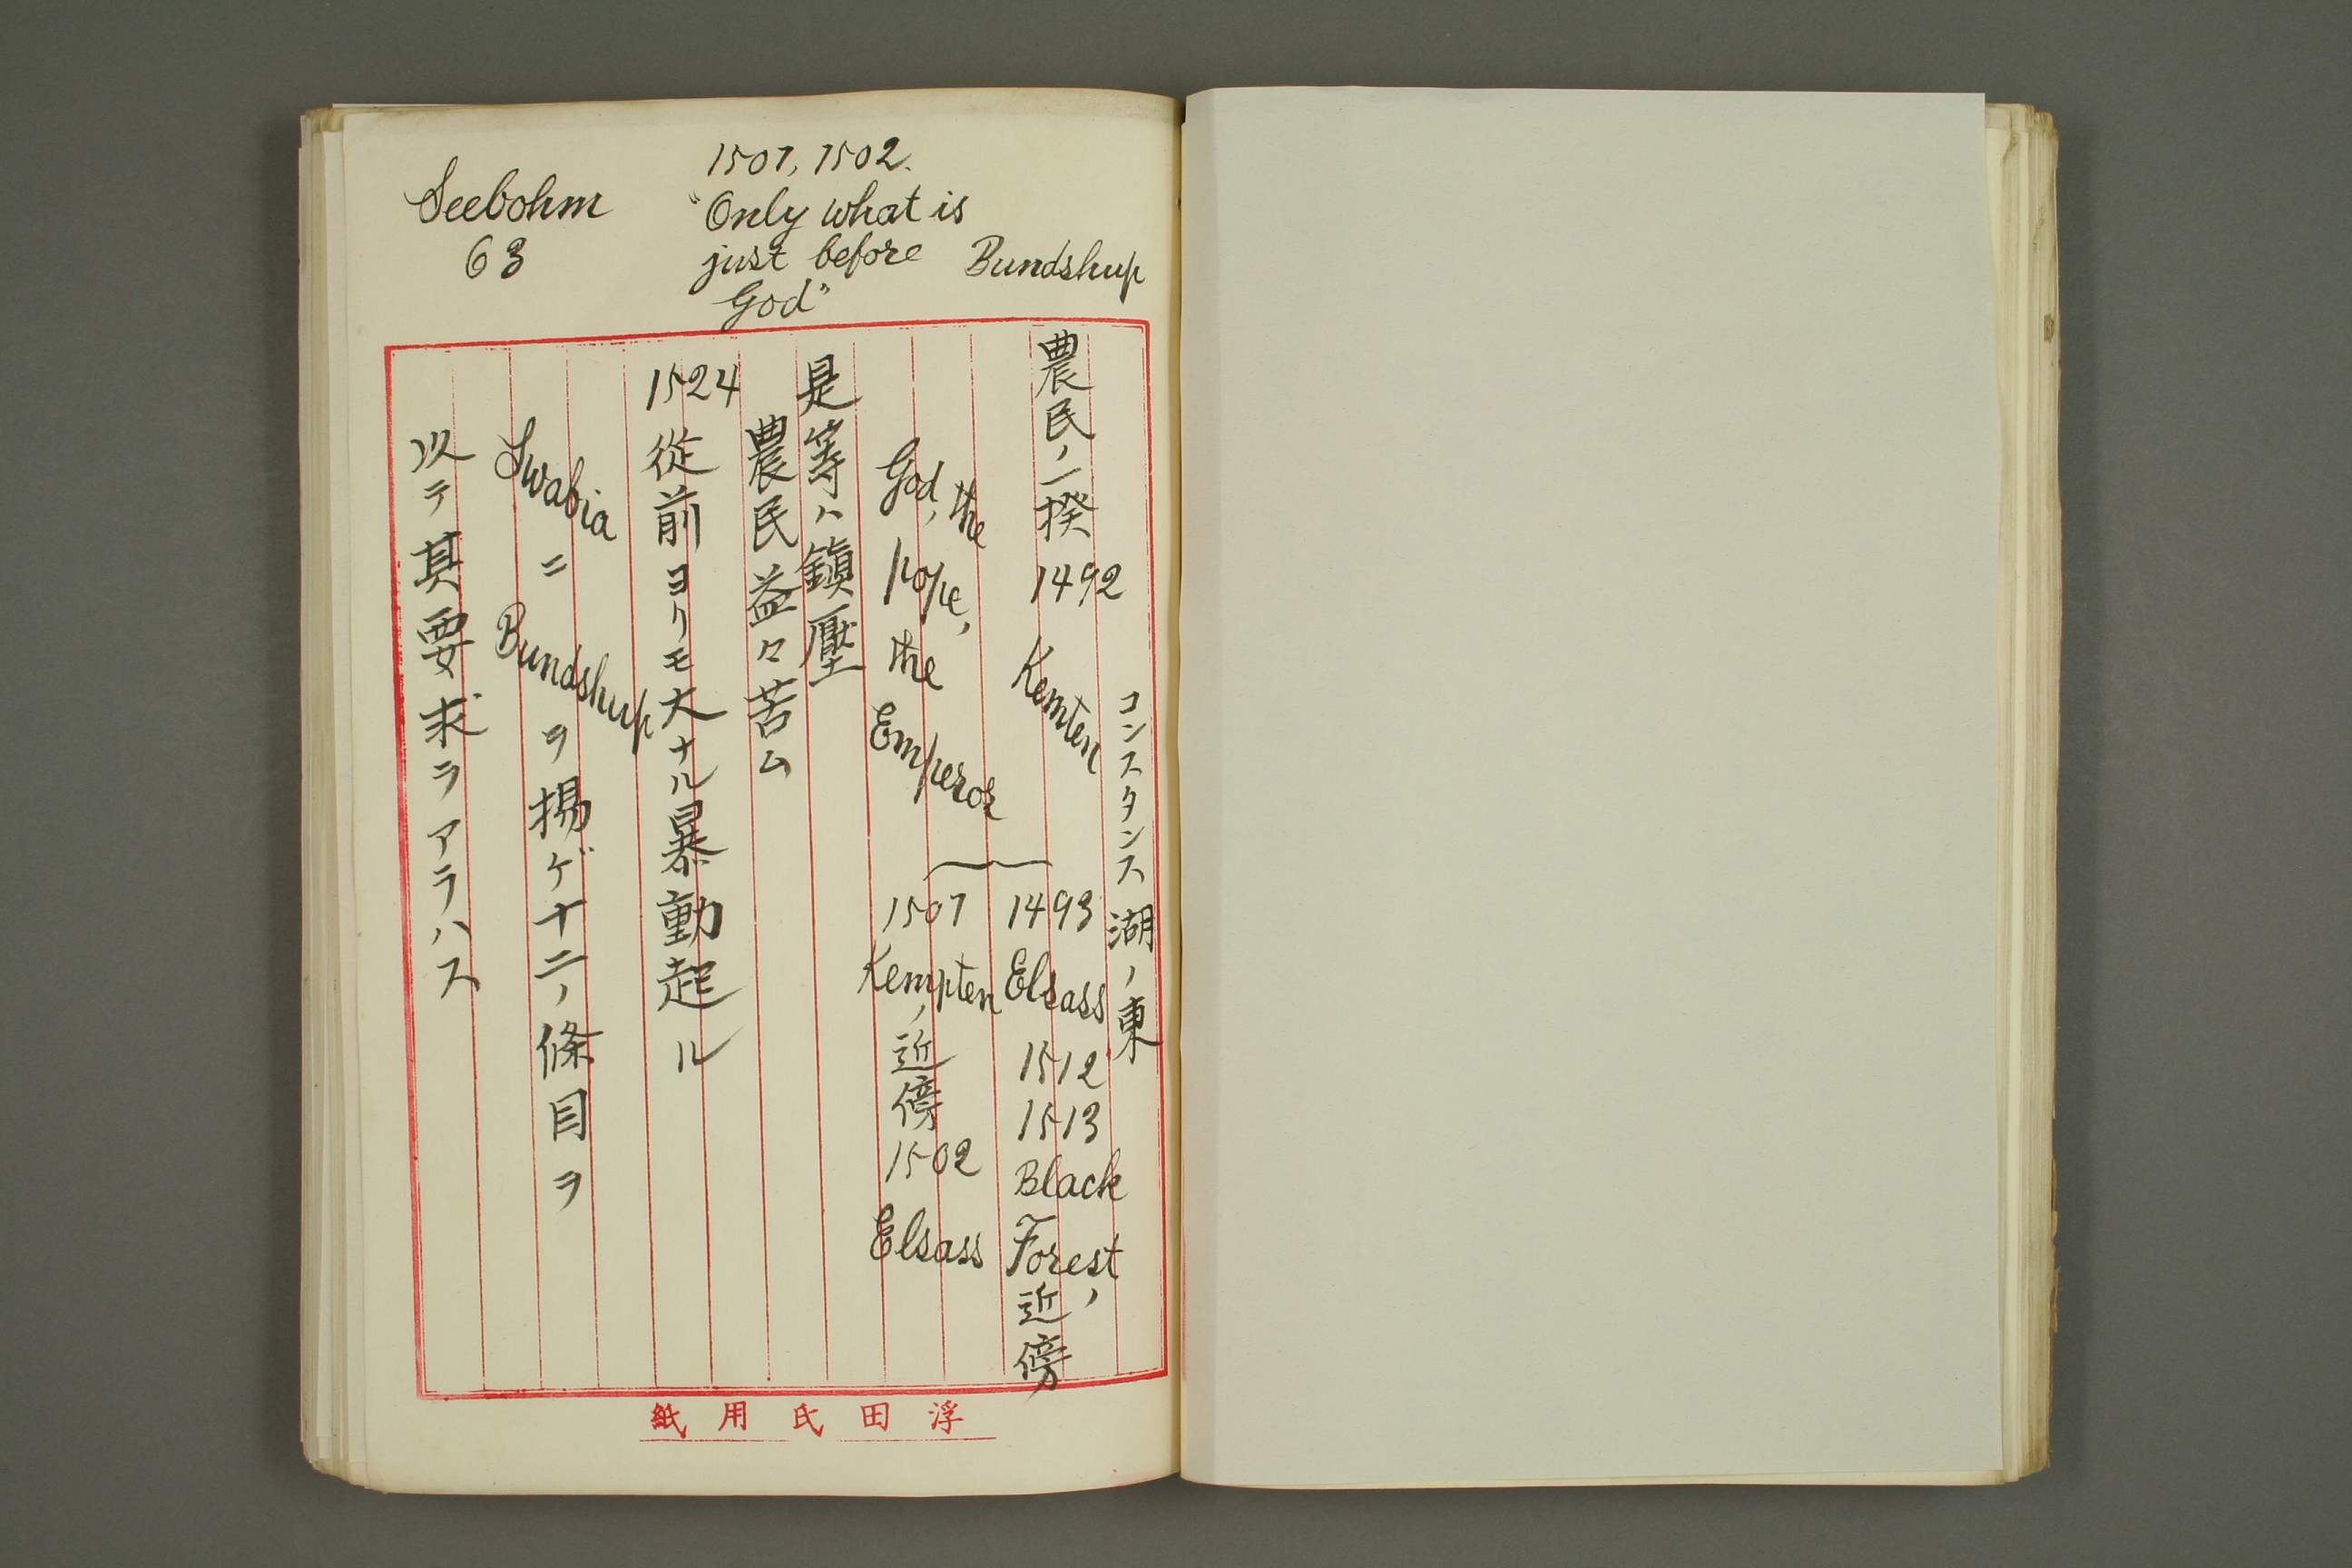 1501, 1502.
"Only what is
just before
God"
Bundshup
Seebohm
63
コンスタンス湖ノ東
農民ノ一揆 1492 Kemten
1493
Elsass
1512
1513
Black
Forest,
近傍
God, the
Pope,
the
Emperor
1501
Kempten
ノ近傍
1502
Elsass
是等ハ鎮壓
農民益々苦ム
1524 從前ヨリモ大ナル暴動起ル
Swabia ニ Bundshup ヲ揚ゲ十二ノ條目ヲ
以テ其要求ヲアラハス
浮田氏用紙